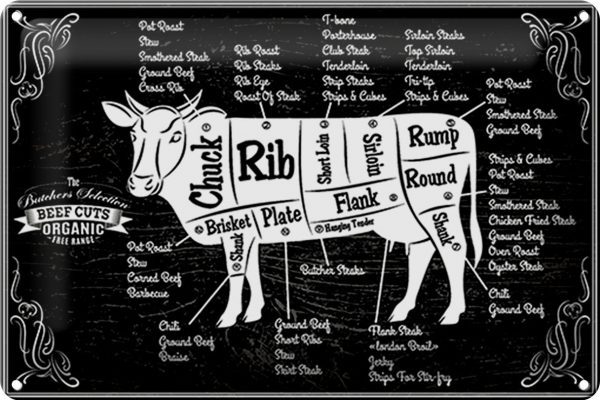 Pot Roast
Stew
Smothered Steak
Ground Beef
Cross Rib
Rib Roast
Rib Steaks
Rib Eye
Roast Of Steak
T-bone
Porterhouse
Club Steak
Tenderloin
Strip Steaks
Strips & Cubes
Sirloin Steaks
Top Sirloin
Tenderloin
Tri-tip
Strips & Cubes
Pot Roast
Stew
Smothered Steak
Ground Beef
Chuck
Rib
Short Loin
Sirloin
Rump
Round
Flank
Hanging Tender
Brisket
Plate
Shank
Shank
The
Butchers Selection
BEEF CUTS
ORGANIC
FREE RANGE
Strips & Cubes
Pot Roast
Stew
Smothered Steak
Chicken Fried Steak
Ground Beef
Oven Roast
Oyster Steak
Pot Roast
Stew
Corned Beef
Barbecue
Butcher Steaks
Chili
Ground Beef
Chili
Ground Beef
Braise
Ground Beef
Short Ribs
Stew
Skirt Steak
Flank Steak
«london Broil»
Jerky
Strips For Stir-fry